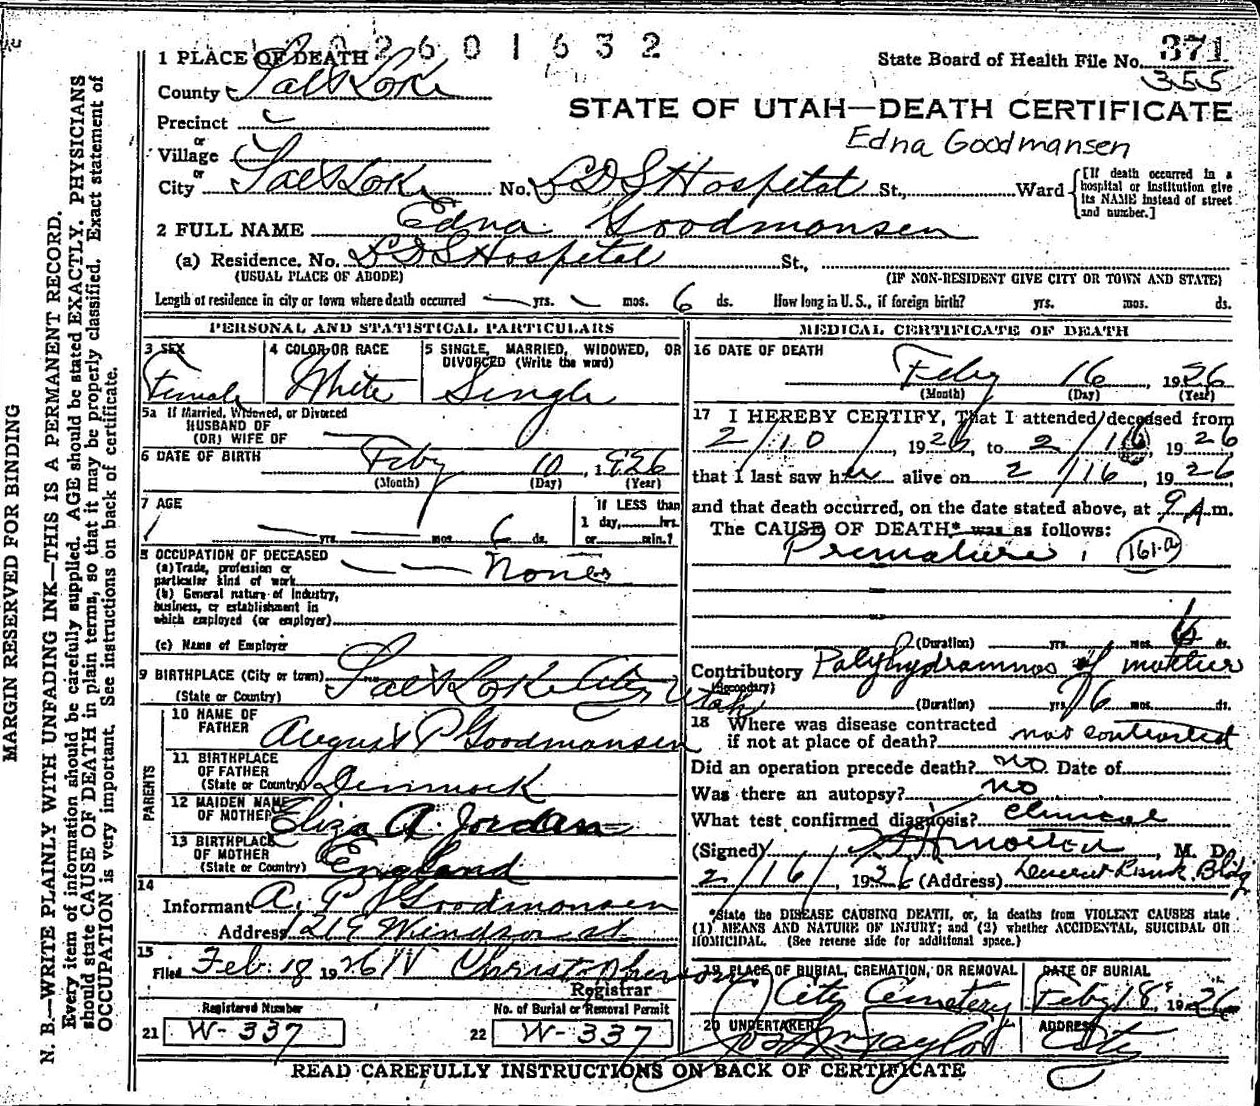 2601632
1 PLACE OF DEATH
State Board of Health File No. 371
355
County Salt Lake
STATE OF UTAH—DEATH CERTIFICATE
Precinct
Edna Goodmansen
or
Village
or
City Salt Lake No. LDS Hospital St., Ward [If death occurred in a hospital or institution give its NAME instead of street and number.]
2 FULL NAME Edna Goodmansen
(a) Residence. No. LDS Hospital St.,
(USUAL PLACE OF ABODE) (IF NON-RESIDENT GIVE CITY OR TOWN AND STATE)
Length of residence in city or town where death occurred — yrs. — mos. 6 ds. How long in U.S., if foreign birth? yrs. mos. ds.
PERSONAL AND STATISTICAL PARTICULARS
3 SEX
Female
4 COLOR OR RACE
White
5 SINGLE, MARRIED, WIDOWED, OR DIVORCED (Write the word)
Single
5a If Married, Widowed, or Divorced
HUSBAND OF
(OR) WIFE OF
6 DATE OF BIRTH Feby 10, 1926
(Month) (Day) (Year)
7 AGE
— yrs. — mos. 6 ds.
If LESS than
1 day, hrs.
or min.?
8 OCCUPATION OF DECEASED
(a) Trade, profession or
particular kind of work None
(b) General nature of Industry,
business, or establishment in
which employed (or employer)
(c) Name of Employer
9 BIRTHPLACE (City or town) Salt Lake City Utah
(State or Country)
PARENTS
10 NAME OF
FATHER August P Goodmansen
11 BIRTHPLACE
OF FATHER
(State or Country) Denmark
12 MAIDEN NAME
OF MOTHER Eliza A. Jordan
13 BIRTHPLACE
OF MOTHER
(State or Country) England
14
Informant A. P. Goodmansen
Address Windsor st
15
Filed Feb 18 1926 Christopherson
Registrar
Registered Number
21 W-337
No. of Burial or Removal Permit
22 W-337
MEDICAL CERTIFICATE OF DEATH
16 DATE OF DEATH
Feby 16, 1926
(Month) (Day) (Year)
17 I HEREBY CERTIFY, That I attended deceased from
2/10, 1926, to 2/16, 1926
that I last saw her alive on 2/16, 1926
and that death occurred, on the date stated above, at 9 A m.
The CAUSE OF DEATH* was as follows:
Premature 161-a
(Duration) yrs. mos. 6 ds.
Contributory Polyhydramnos of mother
(Secondary)
(Duration) yrs. 6 mos. ds.
18 Where was disease contracted
if not at place of death? not contracted
Did an operation precede death? no Date of
Was there an autopsy? no
What test confirmed diagnosis? Clinical
(Signed) Morton, M. D.
2/16/, 1926 (Address) Deseret Bank Bldg
*State the DISEASE CAUSING DEATH, or, in deaths from VIOLENT CAUSES state
(1) MEANS AND NATURE OF INJURY; and (2) whether ACCIDENTAL, SUICIDAL OR
HOMICIDAL. (See reverse side for additional space.)
19 PLACE OF BURIAL, CREMATION, OR REMOVAL
City Cemetery
DATE OF BURIAL
Feby 18, 1926
20 UNDERTAKER
Taylor
ADDRESS
City
READ CAREFULLY INSTRUCTIONS ON BACK OF CERTIFICATE
MARGIN RESERVED FOR BINDING
N. B.—WRITE PLAINLY WITH UNFADING INK—THIS IS A PERMANENT RECORD.
Every item of information should be carefully supplied. AGE should be stated EXACTLY. PHYSICIANS
should state CAUSE OF DEATH in plain terms, so that it may be properly classified. Exact statement of
OCCUPATION is very important. See instructions on back of certificate.